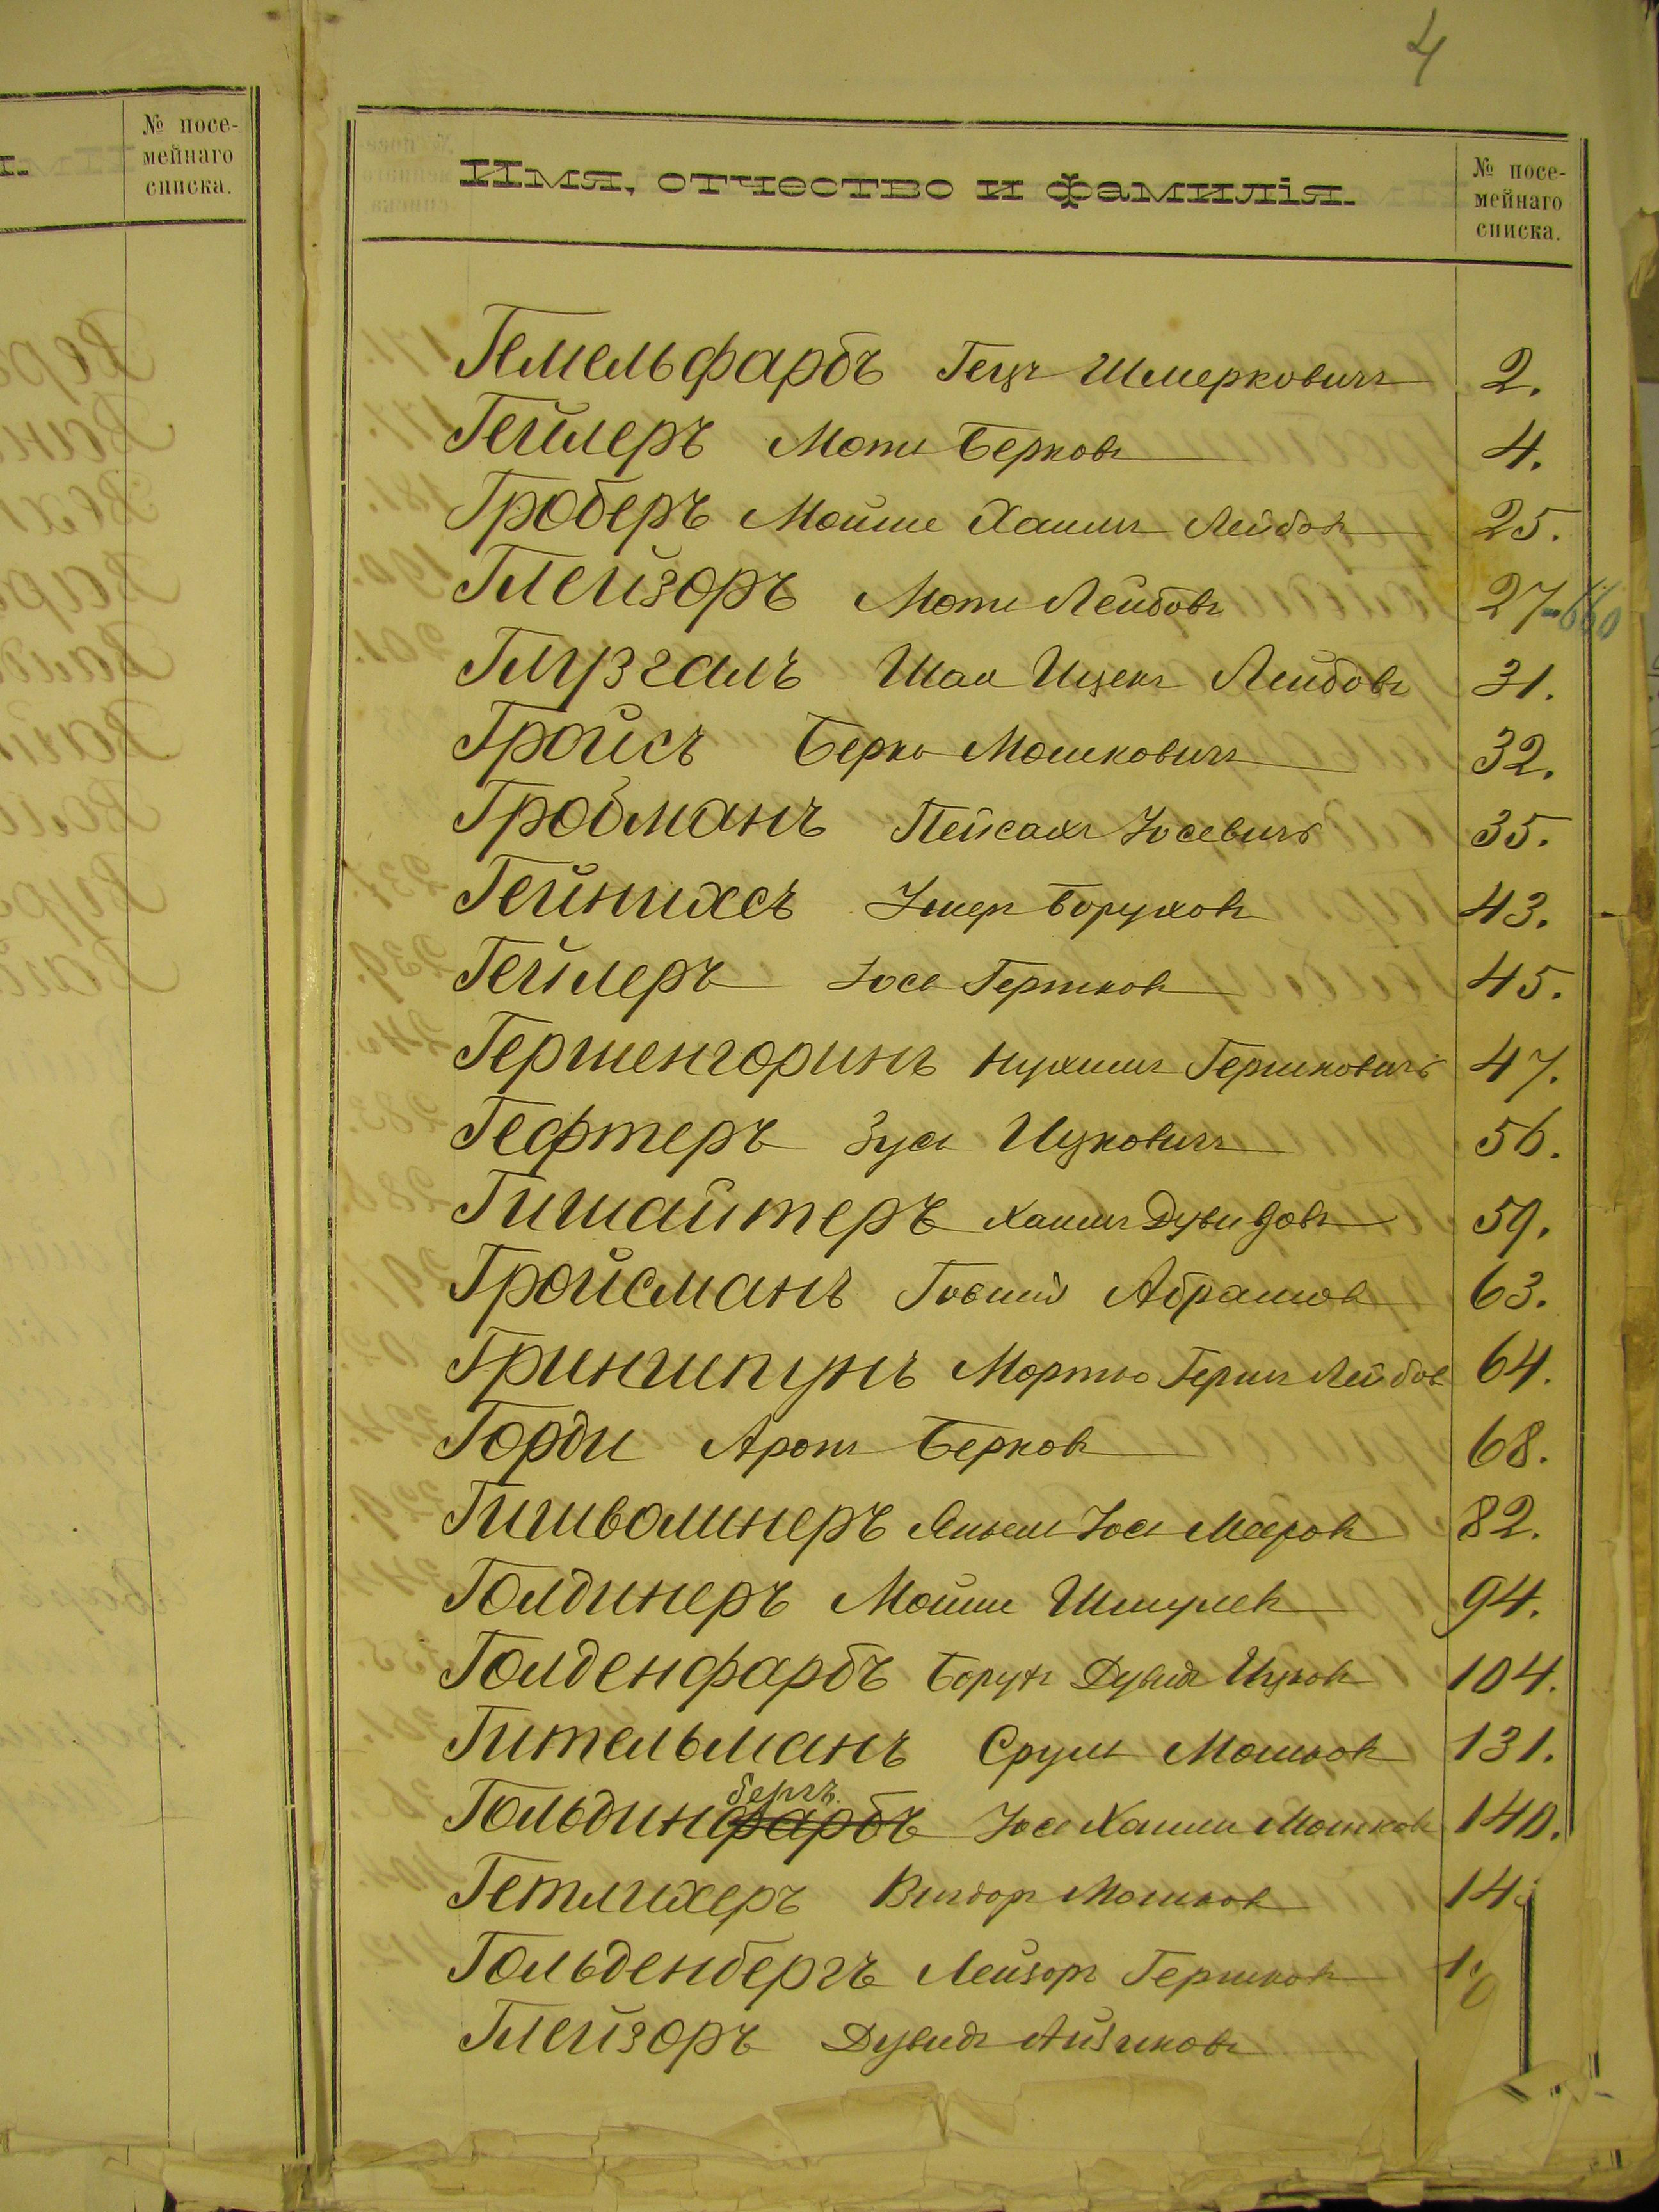 4
№ посе-
мейнаго
списка.
Имя, отчество и фамилія.
№ посе-
мейнаго
списка.
Гемельфарбъ Гецъ Шмерковичъ 2.
Гейлеръ Мотя Берковъ 4.
Гроберъ Мойше Хаимъ Лейбов 25.
Глейзоръ Мотя Лейбовъ 27-660
Глузгалъ Шая Ицекъ Лейбовъ 31.
Гройсъ Берко Мошковичъ 32.
Гробманъ Пейсахъ Іосевичъ 35.
Гейнихсъ Борухов 43.
Гейлеръ Іосе Гершков 45.
Гершенгоринъ Нухимъ Гершковичъ 47.
Гефтеръ Зусъ Ицковичъ 56.
Гишайтеръ Хаимъ Дувидовъ 59.
Гройсманъ Товшій Абрамов 63.
Гриншпунъ Мортко Гершъ Лейбов 64.
Горди Аронъ Берков 68.
Гишволинеръ Янкель Іось Мееров 82.
Голдинеръ Мойше Шмулев 94.
Голденфарбъ Борухъ Дувидъ Ицков 104.
Гительманъ Сруль Мошков 131.
бергъ.
Гольдинфарбъ Іосе Хаим Мошков 140.
Гетлихеръ Вигдоръ Мошков 14
Гольденбергъ Лейзоръ Гершков 1
Глейзоръ Дувидъ Айзиковъ